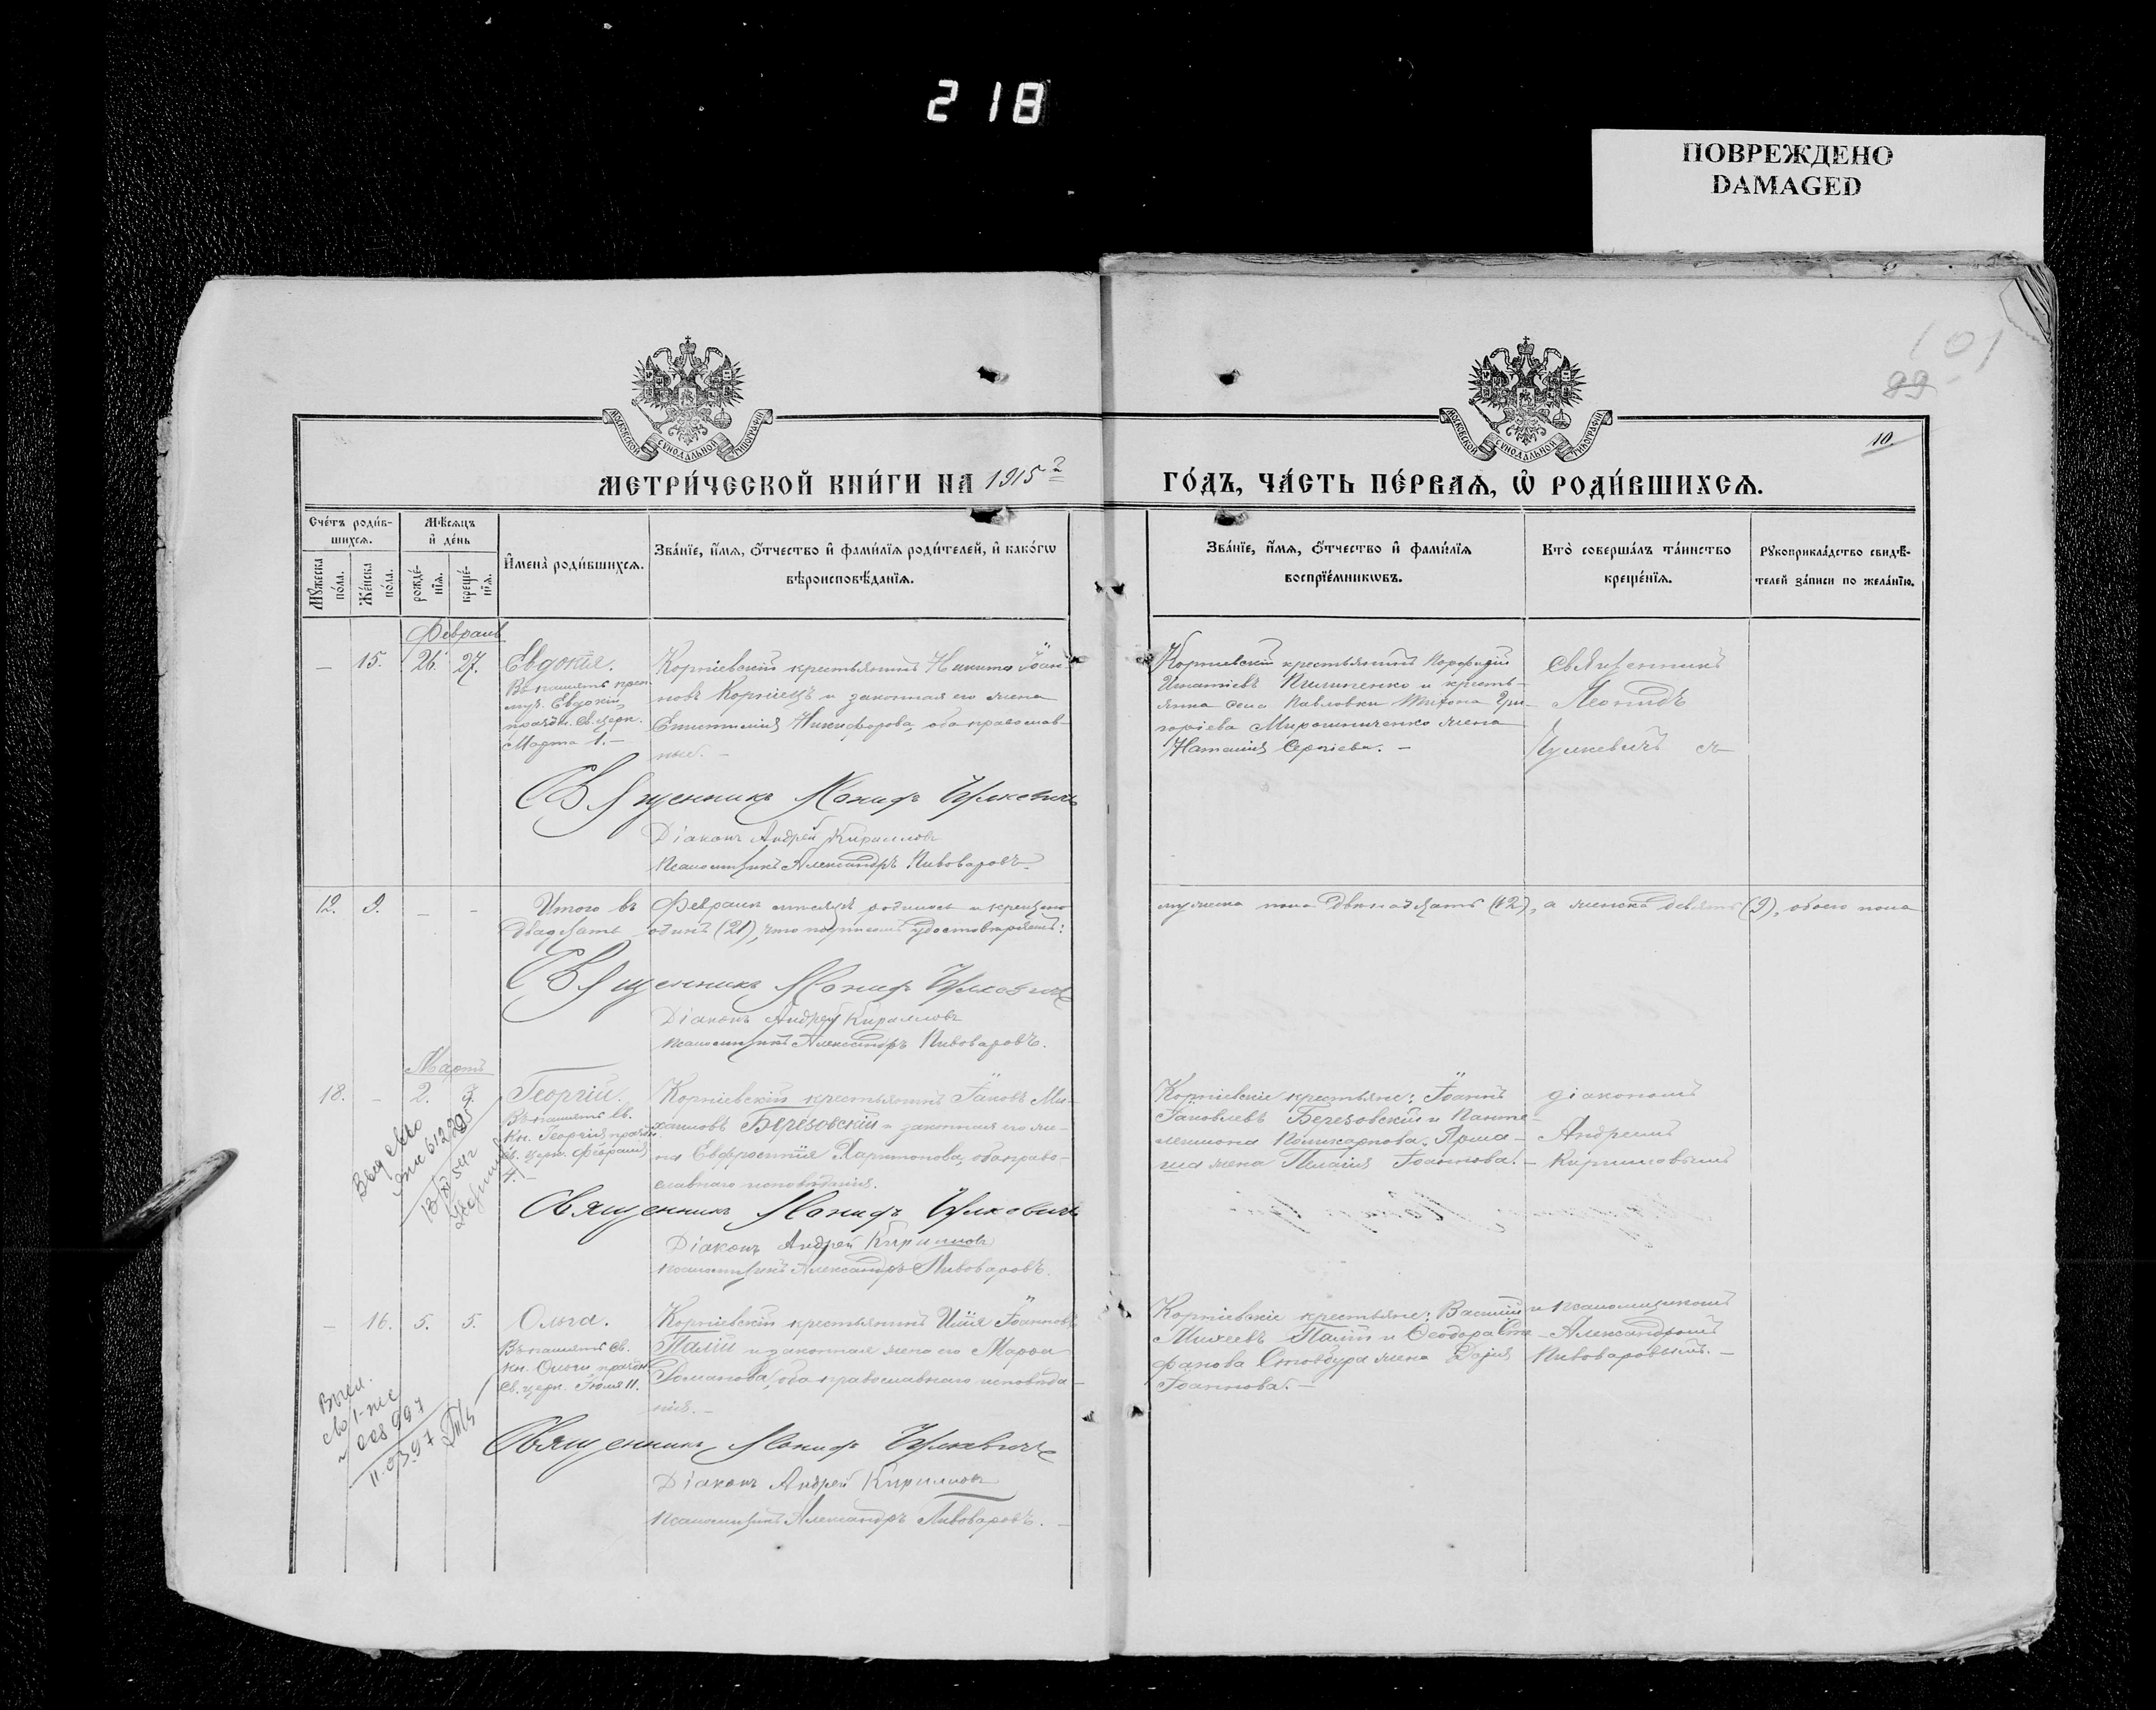 218
ПОВРЕЖДЕНО
DAMAGED
101
99
10
МОСКОВСКОЙ СѴНОДАЛЬНОЙ ТИПОГРАФІИ
МОСКОВСКОЙ СѴНОДАЛЬНОЙ ТИПОГРАФІИ
МЕТРИ́ЧЕСКОЙ КНИ́ГИ НА 1915 г
ГО́ДЪ, ЧА́СТЬ ПЕ́РВАѦ, Ѡ РОДИ́ВШИХСѦ.
Сче́тъ роди́в-
шихсѧ.
Мꙋ́жеска
по́ла.
Же́нска
по́ла.
Мѣ́сѧцъ
и҆ де́нь
рожде́-
нїѧ.
креще́-
нїѧ.
И҆мена̀ роди́вшихсѧ.
Зва́нїе, и҆́мѧ, ѻ҆́тчество и҆ фами́лїѧ роди́телей, и҆ како́гѡ
вѣроисповѣ́данїѧ.
Зва́нїе, и҆́мѧ, ѻ҆́тчество и҆ фами́лїѧ
воспрїе́мникѡвъ.
Кто̀ соверша́лъ та́инство
креще́нїѧ.
Рꙋкоприкла́дство свидѣ́-
телей за́писи по жела́нїю.
Февраль
— 15. 26. 27. Евдокія.
Въ память преп.
муч. Евдокіи,
праздн. св. церк.
Марта 1. —
Корніевскій крестьянинъ Никита Іоан-
новъ Корніецъ и законная его жена
Епистимія Никифорова, оба православ-
ные. —
Корніевскій крестьянинъ Порфирій
Игнатіевъ Пилипенко и кресть-
янина села Павловки Тихона Гри-
горіева Мирошниченко жена
Наталія Сергіева. —
Священникъ
Леонидъ
Священникъ
Діаконъ Андрей Кирилловъ
Псаломщикъ Александръ Пивоваровъ
12. 9. — — Итого въ Февралѣ мѣсяцѣ родилось и крещено мужеска пола двѣнадцать (12), а женска девять (9), обоего пола
двадцать одинъ (21), что подписомъ удостовѣряемъ:
Священникъ
Діаконъ Андрей Кирилловъ
Псаломщикъ Александръ Пивоваровъ.
Мартъ
18. — 2. 3. Георгій.
Въ память св.
Кн. Георгія, праздн.
св. церк. Февраля
4. —
Корніевскій крестьянинъ Іаковъ Ми-
хаиловъ Березовскій и законная его же-
на Евфросинія Харитонова, оба право-
славнаго исповѣданія.
Корніевскіе крестьяне: Іоаннъ
Іаковлевъ Березовскій и Панте-
леимона Поликарпова
жена Пелагія Іоаннова. —
діакономъ
Андреемъ
Кирилловымъ
Священникъ
Діаконъ Андрей Кирилловъ
Псаломщикъ Александръ Пивоваровъ.
— 16. 5. 5. Ольга.
Въ память св.
кн. Ольги, праздн.
св. церк. Іюля 11.
Корніевскій крестьянинъ Илія Іоанновъ
Палій и законная жена его Марѳа
Романова, оба православнаго исповѣда-
нія. —
Корніевскіе крестьяне: Василій
Михеевъ Палій и Ѳеодора Сте-
фанова жена Дарія
Іоаннова. —
и псаломщикомъ
Александромъ
Пивоваровымъ. —
Священникъ
Діаконъ Андрей Кирилловъ
Псаломщикъ Александръ Пивоваровъ. —